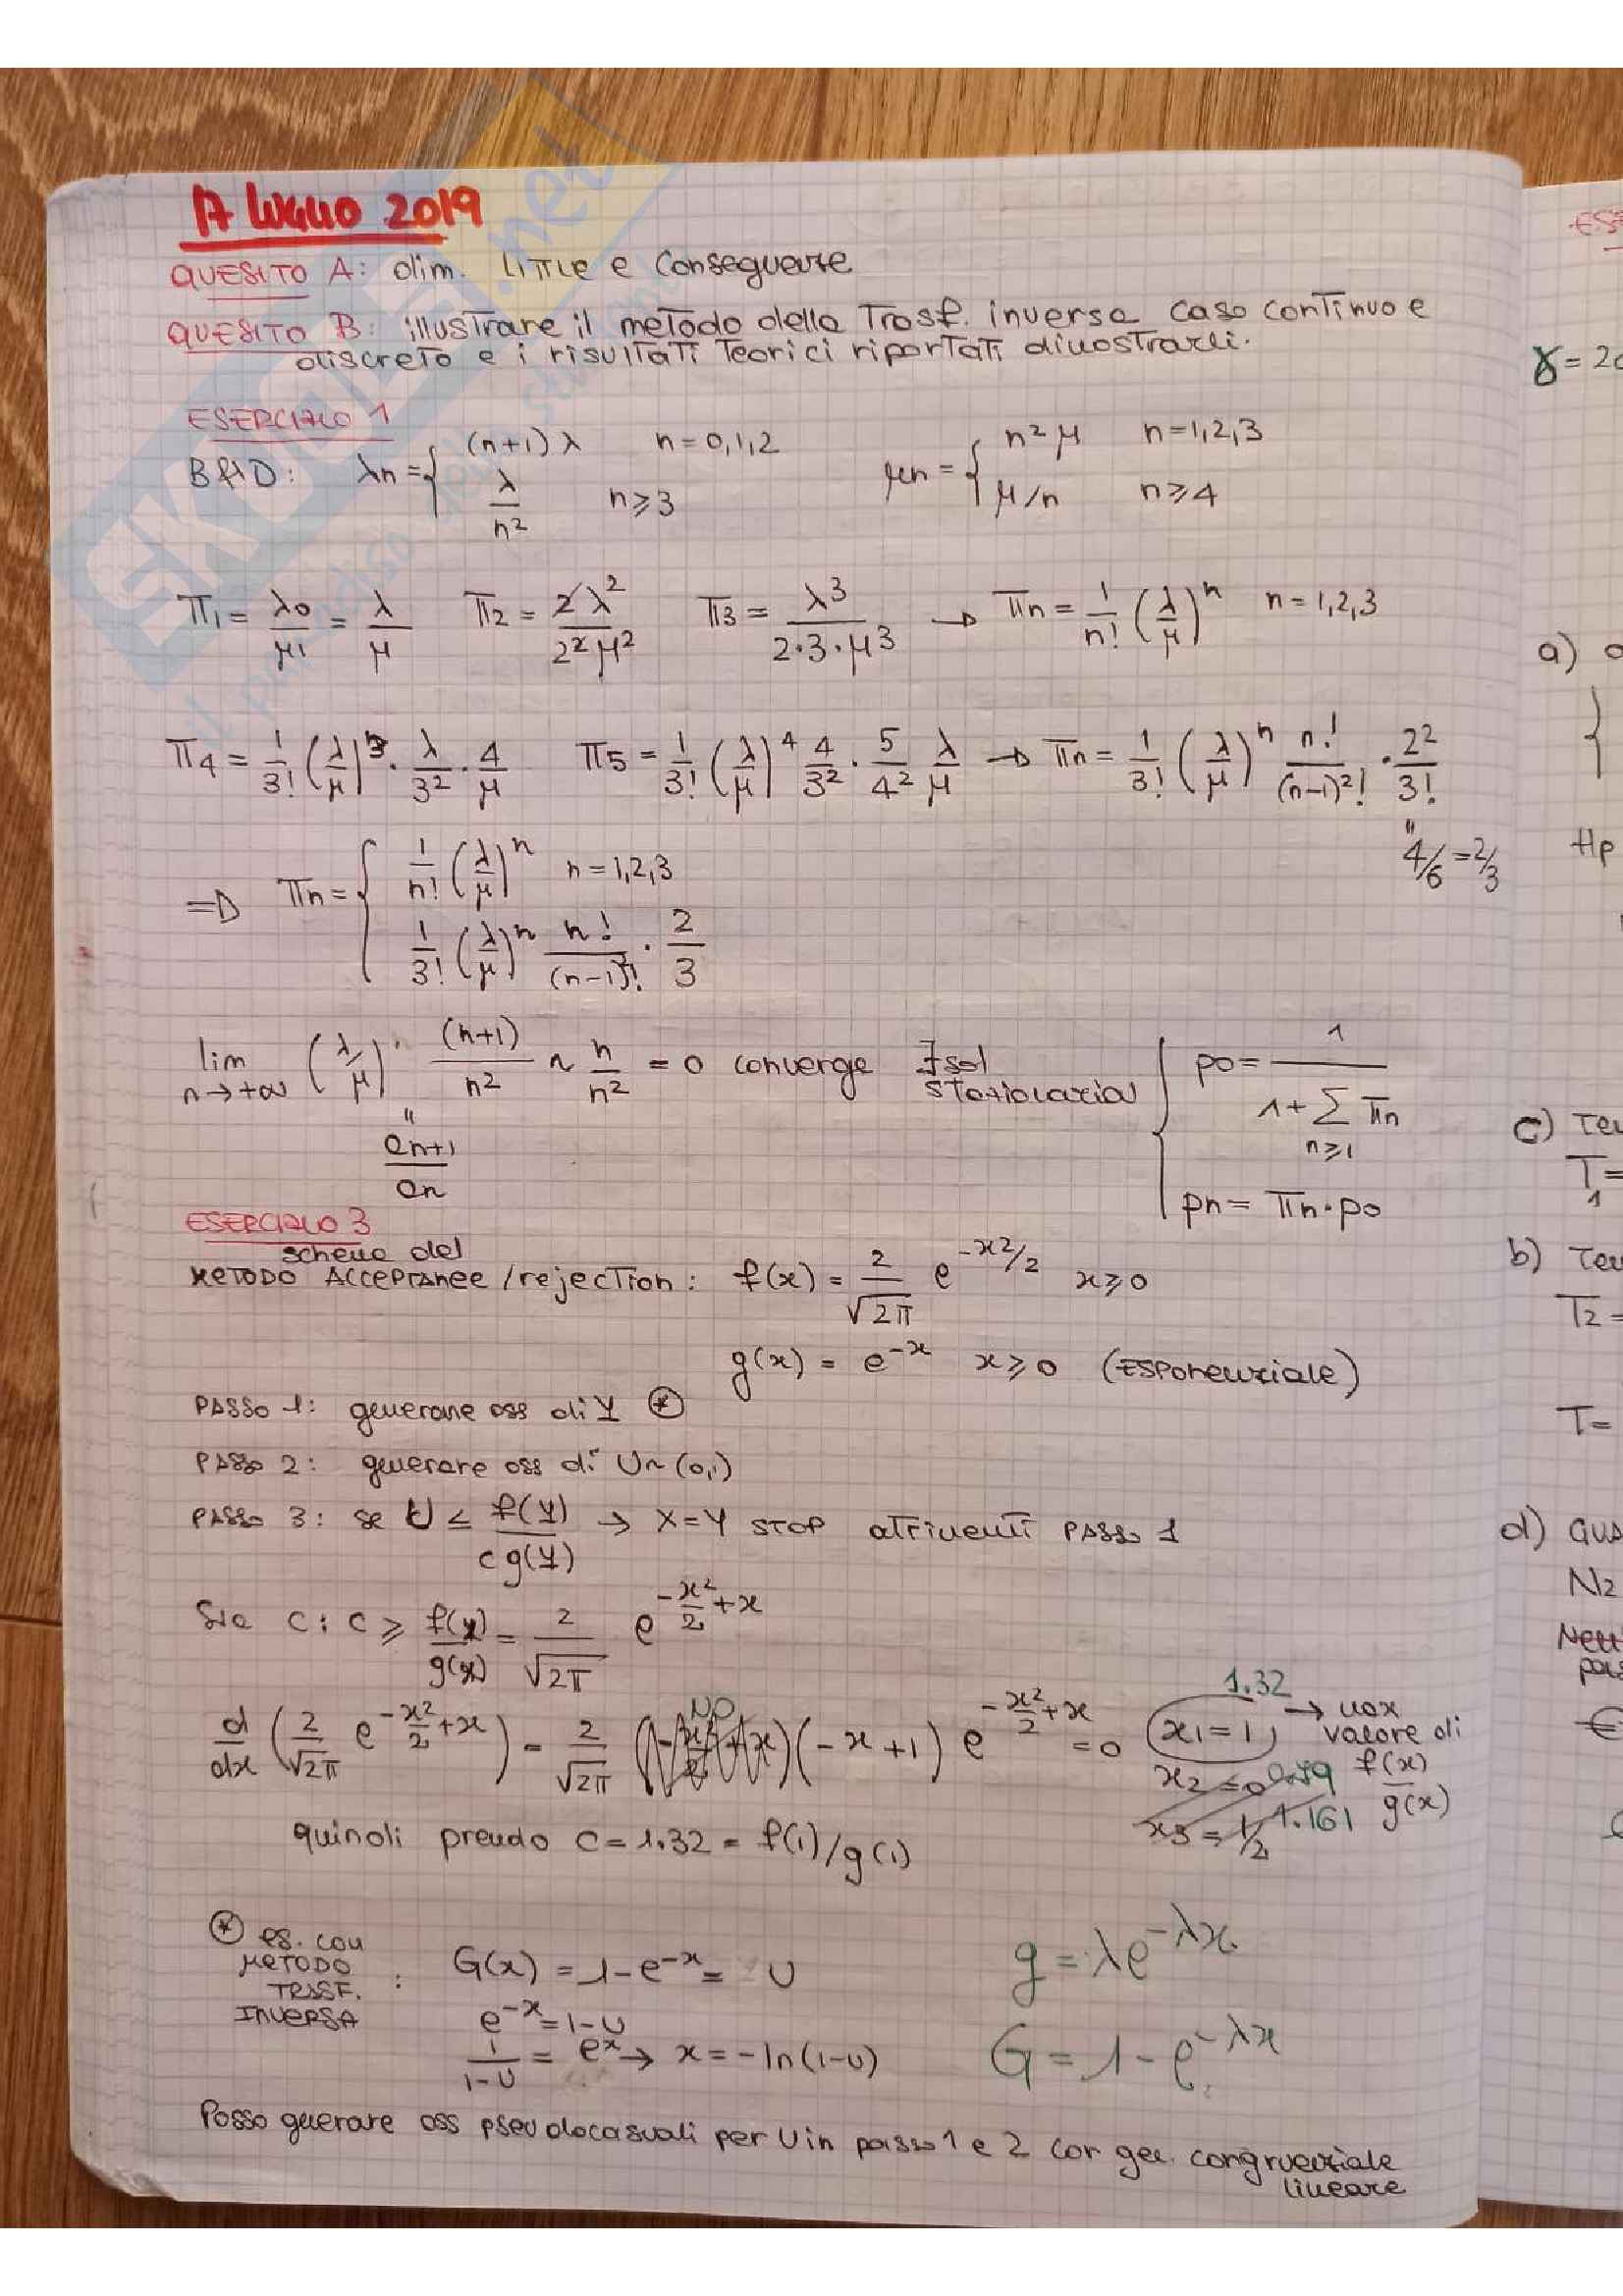 17 LUGLIO 2019
QUESITO A: dim. LITTLE e conseguenze
QUESITO B: illustrare il metodo della Trasf. inversa caso continuo e
discreto e i risultati Teorici riportati dimostrarli.
ESERCIZIO 1
B&D: λn = { (n+1)λ n=0,1,2 μn = { n² μ n=1,2,3
λ/n² n≥3 μ/n n≥4
π1 = λ0/μ1 = λ/μ π2 = 2λ²/2²μ² π3 = λ³/2·3·μ³ → πn = 1/n! (λ/μ)^n n=1,2,3
π4 = 1/3! (λ/μ)³ · λ/3² · 4/μ π5 = 1/3! (λ/μ)^4 4/3² · 5/4² λ/μ → πn = 1/3! (λ/μ)^n n!/(n-1)²! · 2²/3!
" 4/6 = 2/3
=> πn = { 1/n! (λ/μ)^n n=1,2,3
1/3! (λ/μ)^n n!/(n-1)²! · 2/3
lim n→+∞ (λ/μ) (n+1)/n² ~ n/n² = 0 converge ∃ sol stazionaria { p0 = 1/(1+ Σ n≥1 πn)
" an+1/an
pn = πn · p0
ESERCIZIO 3
scheme del
METODO Acceptance/rejection: f(x) = 2/√2π e^(-x²/2) x≥0
g(x) = e^-x x≥0 (Esponenziale)
PASSO 1: generare oss di Y ⊛
PASSO 2: generare oss di U~(0,1)
PASSO 3: se U ≤ f(Y)/cg(Y) → X=Y STOP altrimenti PASSO 1
Sia c: c ≥ f(x)/g(x) = 2/√2π e^(-x²/2 +x)
d/dx (2/√2π e^(-x²/2 +x)) = 2/√2π NO (-x+1) e^(-x²/2 +x) = 0 x1=1 1.32 → max
valore di
f(x)/g(x)
x2=0 0.79
x3=1/2 1.161
quindi prendo c=1.32 = f(1)/g(1)
⊛ es. con
METODO
TRASF.
INVERSA : G(x) = 1-e^-x = U
e^-x = 1-U
1/(1-U) = e^x → x = -ln(1-U)
g = λe^-λx
G = 1-e^-λx
Posso generare oss pseudocasuali per U in passo 1 e 2 con gen. congruenziale
lineare
ES
γ=20
a)
{
Hp
c) Ten
T1 =
b) Ten
T2 =
T=
d) Gus
N2
SKUOLA.net
il paradiso dello studente